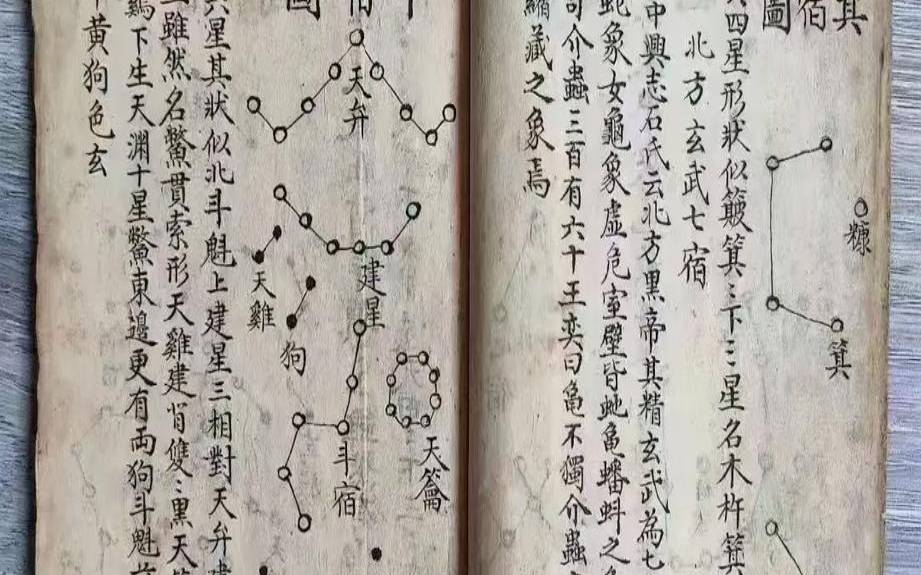 箕宿圖
糠
箕
四星形狀似簸箕〻下三星名木杵箕
北方玄武七宿
中興志石氏云北方黑帝其精玄武為七
蛇象女龜象虛危室壁皆虵龜蟠蚪之
司介蟲三百有六十王奕曰龜不獨介蟲
縮藏之象焉
宿圖
天弁
建星
天籥
斗宿
天雞
狗
星其狀似北斗魁上建星三相對天弁建
雖然名鱉貫索形天雞建背雙〻黑天
下生天淵十星鱉東邊更有兩狗斗魁前
黃狗色玄